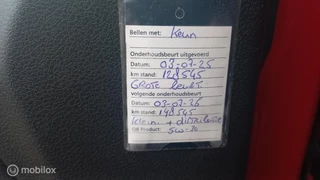 Bellen met: Keun
Onderhoudsbeurt uitgevoerd
Datum: 03-07-25
km stand: 128545
GROTE beurt
volgende onderhoudsbeurt
Datum: 03-07-26
km stand: 148545
Klein + distributie
Oil Product: 5w-30
mobilox